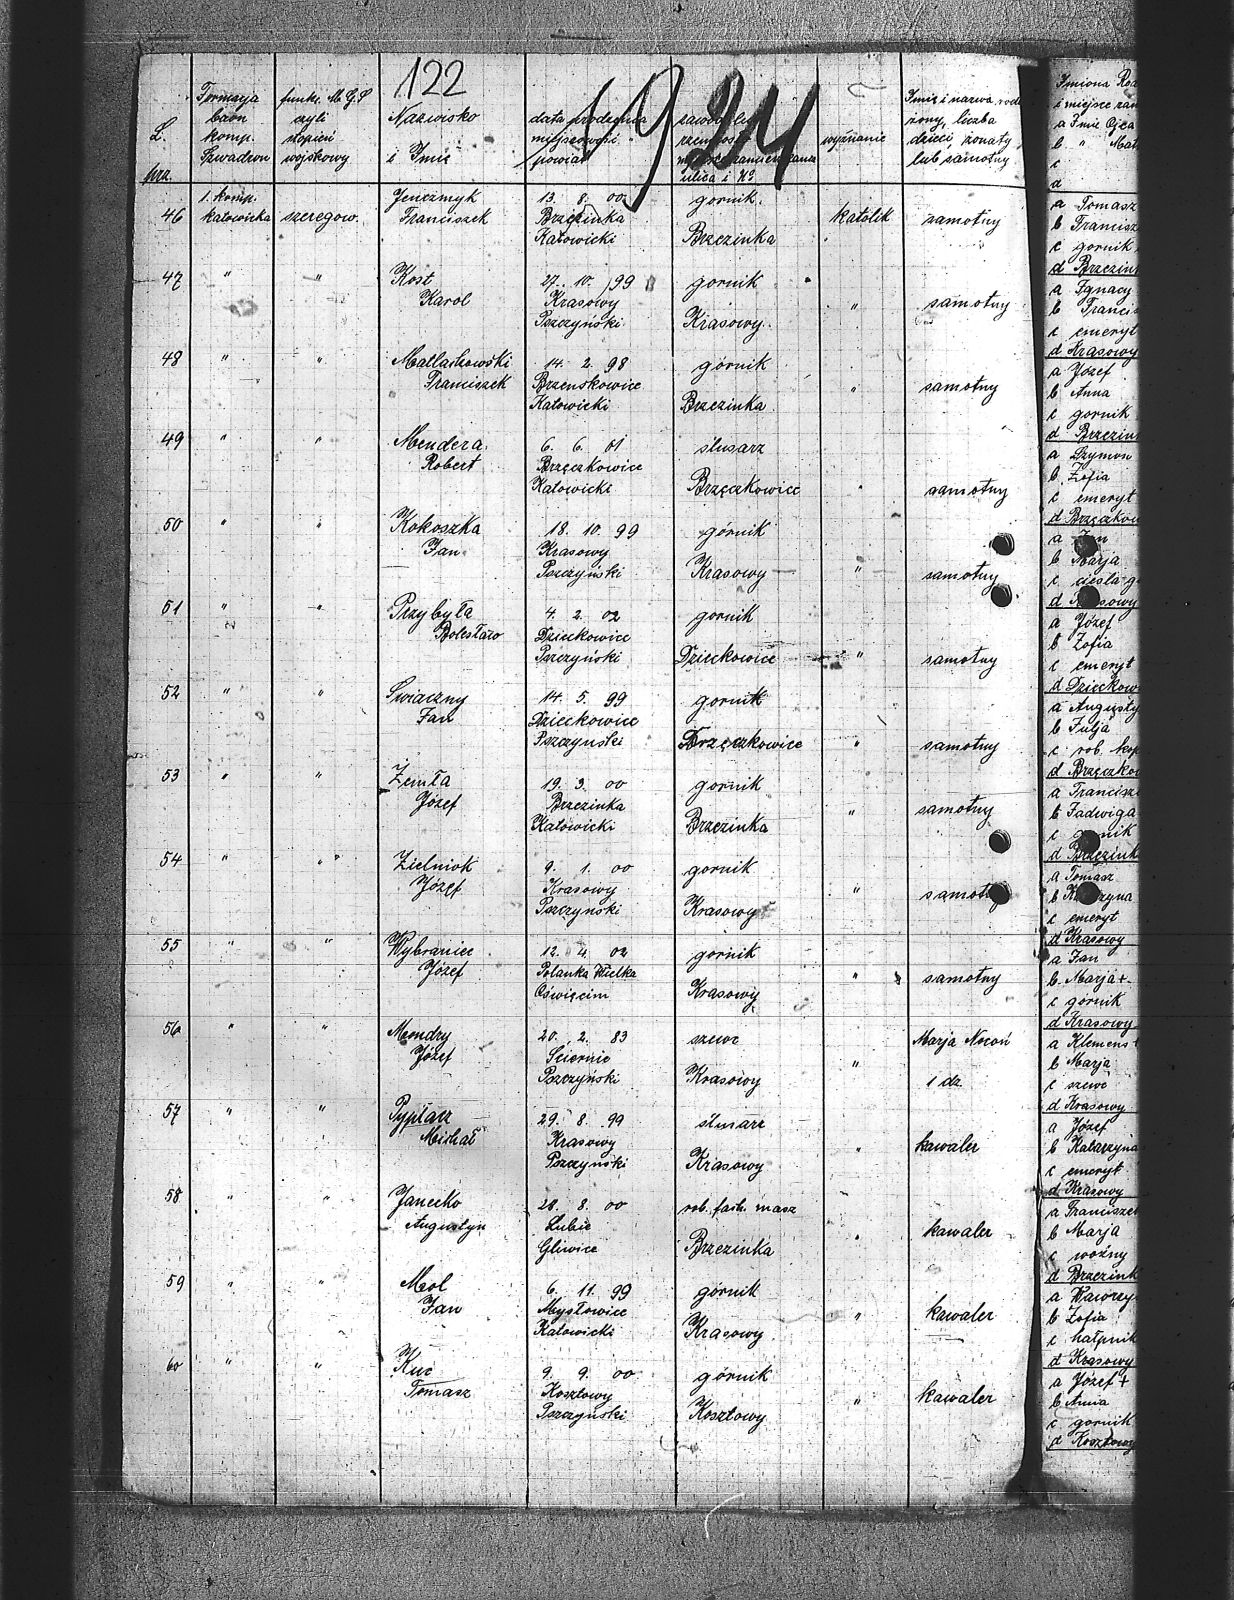 122
1921
L. prz.
Formacja baon komp. Szwadron
funkc. M.G.S czyli stopień wojskowy
Nazwisko i Imię
data urodzenia miejscowość powiat
ulica i No
wyznanie
Imię i nazwa rod. żony, liczba dzieci, żonaty lub samotny
Imiona Roz
i miejsce zam
a Imię Ojca
b " Mat
c
d
46 1. komp. katowicka szeregow. Jenczmyk Franciszek 13. 8. 00 Brzezinka Katowicki gornik Brzezinka katolik samotny
a Tomasz
b Francisz
c gornik
d Brzezink
47 " " Kost Karol 27. 10. 99 Krasowy Pszczyński gornik Krasowy " samotny
a Ignacy
b Francis
c emeryt
d Krasowy
48 " " Matlachowski Franciszek 14. 2. 98 Brzenskowice Katowicki górnik Brzezinka " samotny
a Józef
b Anna
c gornik
d Brzezin
49 " " Mendera Robert 6. 6. 01 Brzęczkowice Katowicki ślusarz Brzęczkowice " samotny
a Szymon
b Zofia
c emeryt
d Brzęczkow
50 " " Kokoszka Jan 18. 10. 99 Krasowy Pszczyński górnik Krasowy " samotny
a Jan
b Marja
c ciesla g
d Krasowy
51 " " Przybyła Bolesław 4. 2. 02 Dzieckowice Pszczyński gornik Dzieckowice " samotny
a Józef
b Zofia
c emeryt
d Dzieckow
52 " " Swiaczny Jan 14. 5. 99 Dzieckowice Pszczynski gornik Brzęczkowice " samotny
a Augusty
b Julja
c rob. kop
d Brzęczkow
53 " " Żemła Józef 19. 3. 00 Brzezinka Katowicki gornik Brzezinka " samotny
a Francisz
b Jadwiga
c gornik
d Brzezink
54 " " Zielniok Józef 9. 1. 00 Krasowy Pszczynski gornik Krasowy " samotny
a Tomasz
b Katarzyna
c emeryt
d Krasowy
55 " " Wybraniec Józef 12. 4. 02 Polanka Wielka Oświęcim gornik Krasowy " samotny
a Jan
b Marja +
c górnik
d Krasowy
56 " " Mondry Józef 20. 2. 83 Sciernie Pszczyński szewc Krasowy " Marja Nocoń 1 dz.
a Klemens +
b Marja
c szewc
d Krasowy
57 " " Pyplacz Michał 29. 8. 99 Krasowy Pszczyński Krasowy " kawaler
a Józef
b Katarzyna
c emeryt
d Krasowy
58 " " Janecko Augustyn 28. 8. 00 Łubie Gliwice rob. fach. masz Brzezinka " kawaler
a Franciszek
b Marja
c woźny
d Brzezink
59 " " Mol Jan 6. 11. 99 Mysłowice Katowicki górnik Krasowy " kawaler
a Wawrzy
b Zofia
c hałpnik
d Krasowy
60 " " Kuc Tomasz 9. 9. 00 Kosztowy Pszczynski górnik Kosztowy " kawaler
a Józef +
b Anna
c gornik
d Kosztowy